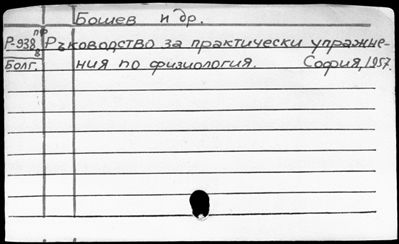 Бошев и др.
Р-938 пр в Ръководство за практически упражне-
Болг. ния по физиология. София, 1957.